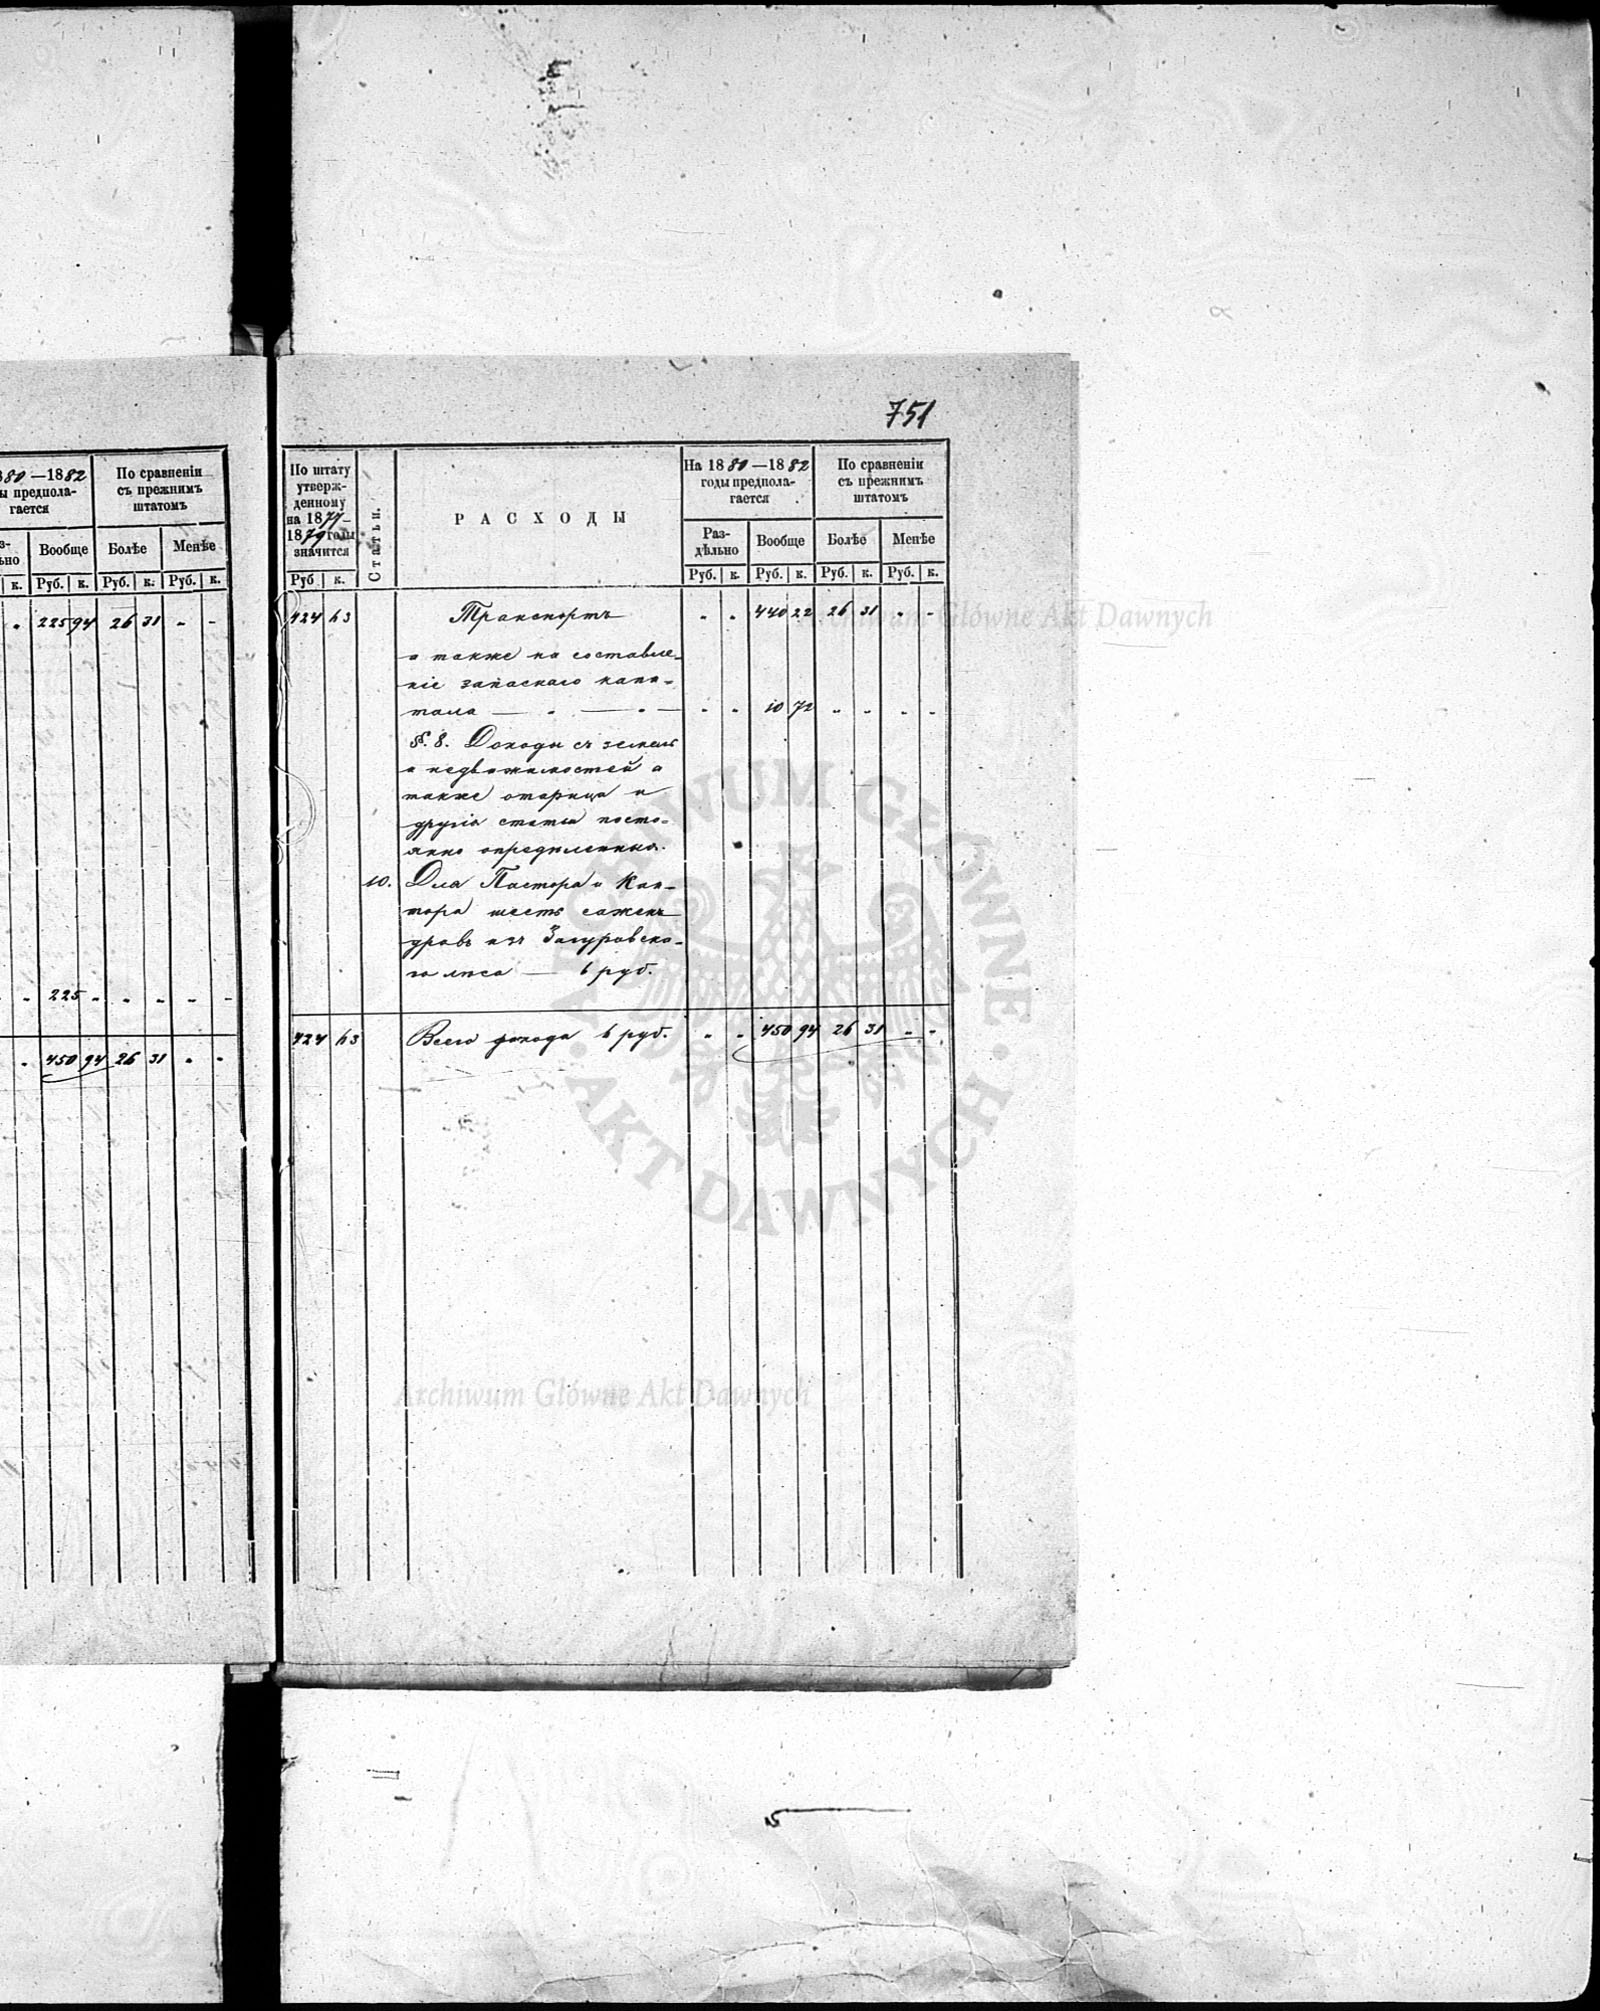 751
880—1882
ы предпола-
гается
По сравненіи
съ прежнимъ
штатомъ
Вообще
Болѣе
Менѣе
к. Руб. к. Руб. к. Руб. к.
" 225 94 26 31 " "
" 225 " " " " "
" 450 94 26 31 " "
По штату
утверж-
денному
на 1877—
1879 годы
значится
Руб к.
Статьи.
РАСХОДЫ
На 1880—1882
годы предпола-
гается
Раз-
дѣльно
Вообще
Руб. к. Руб. к.
По сравненіи
съ прежнимъ
штатомъ
Болѣе
Менѣе
Руб. к. Руб. к.
424 63 Транспортъ " " 440 22 26 31 " "
а также на составле-
ніе запаснаго капи-
тала — " — " — " " 10 72 " " " "
§. 8. Доходы съ земель
и недвижимостей а
также
другія статьи посто-
янно опредѣленныя.
10. Для Пастора и Кан-
тора шесть сажень
дровъ изъ Загуровска-
го лѣса — 6 руб.
424 63 Всего дохода 6 руб. " " 450 94 26 31 " "
Archiwum Główne Akt Dawnych
ARCHIWUM GŁÓWNE · AKT DAWNYCH ·
Archiwum Główne Akt Dawnych